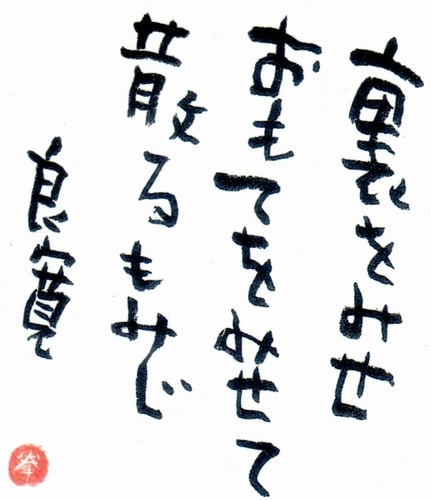 裏をみせ
おもてをみせて
散るもみじ
良寛